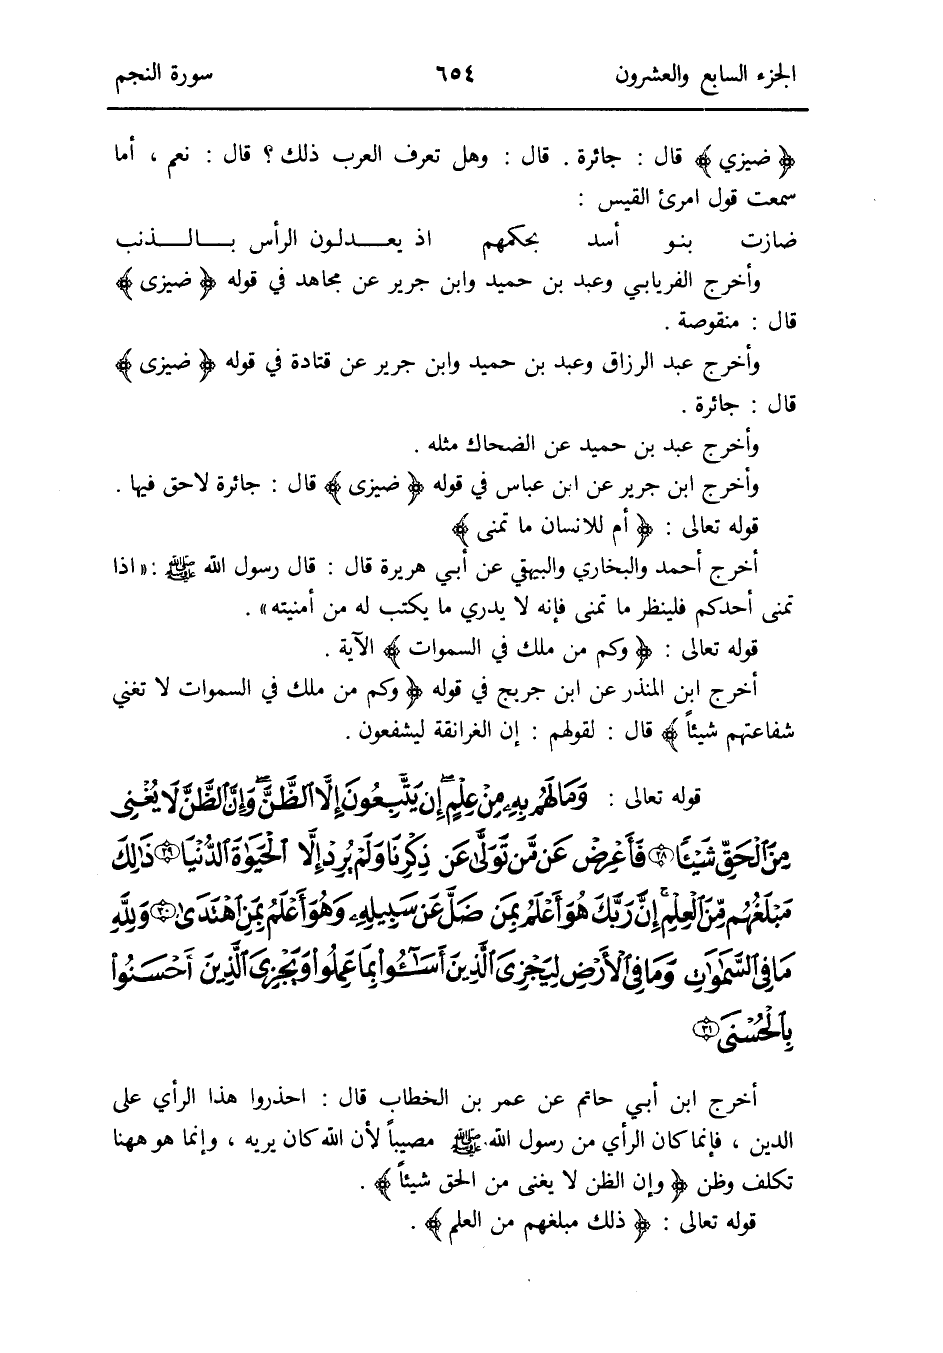 الجزء السابع والعشرون ٦٥٤ سورة النجم
﴿ ضيزي ﴾ قال : جائرة . قال : وهل تعرف العرب ذلك ؟ قال : نعم ، أما
سمعت قول امرئ القيس :
ضازت بنو أسد بحكمهم اذ يعدلون الرأس بالذنب
وأخرج الفريابي وعبد بن حميد وابن جرير عن مجاهد في قوله ﴿ ضيزى ﴾
قال : منقوصة .
وأخرج عبد الرزاق وعبد بن حميد وابن جرير عن قتادة في قوله ﴿ ضيزى ﴾
قال : جائرة .
وأخرج عبد بن حميد عن الضحاك مثله .
وأخرج ابن جرير عن ابن عباس في قوله ﴿ ضيزى ﴾ قال : جائرة لاحق فيها .
قوله تعالى : ﴿ أم للانسان ما تمنى ﴾
أخرج أحمد والبخاري والبيهقي عن أبي هريرة قال : قال رسول الله ﷺ :« اذا
تمنى أحدكم فلينظر ما تمنى فإنه لا يدري ما يكتب له من أمنيته» .
قوله تعالى : ﴿ وكم من ملك في السموات ﴾ الآية .
أخرج ابن المنذر عن ابن جريج في قوله ﴿ وكم من ملك في السموات لا تغني
شفاعتهم شيئاً ﴾ قال : لقولهم : إن الغرانقة ليشفعون .
قوله تعالى : وَمَا لَهُم بِهِۦ مِنْ عِلْمٍ ۖ إِن يَتَّبِعُونَ إِلَّا ٱلظَّنَّ ۖ وَإِنَّ ٱلظَّنَّ لَا يُغْنِى
مِنَ ٱلْحَقِّ شَيْـًٔا ﴿٢٨﴾ فَأَعْرِضْ عَن مَّن تَوَلَّىٰ عَن ذِكْرِنَا وَلَمْ يُرِدْ إِلَّا ٱلْحَيَوٰةَ ٱلدُّنْيَا ﴿٢٩﴾ ذَٰلِكَ
مَبْلَغُهُم مِّنَ ٱلْعِلْمِ ۚ إِنَّ رَبَّكَ هُوَ أَعْلَمُ بِمَن ضَلَّ عَن سَبِيلِهِۦ وَهُوَ أَعْلَمُ بِمَنِ ٱهْتَدَىٰ ﴿٣٠﴾ وَلِلَّهِ
مَا فِى ٱلسَّمَٰوَٰتِ وَمَا فِى ٱلْأَرْضِ لِيَجْزِىَ ٱلَّذِينَ أَسَٰٓـُٔوا۟ بِمَا عَمِلُوا۟ وَيَجْزِىَ ٱلَّذِينَ أَحْسَنُوا۟
بِٱلْحُسْنَى ﴿٣١﴾
أخرج ابن أبي حاتم عن عمر بن الخطاب قال : احذروا هذا الرأي على
الدين ، فإنما كان الرأي من رسول الله ﷺ مصيباً لأن الله كان يريه ، وإنما هو ههنا
تكلف وظن ﴿ وإن الظن لا يغنى من الحق شيئاً ﴾ .
قوله تعالى : ﴿ ذلك مبلغهم من العلم ﴾ .